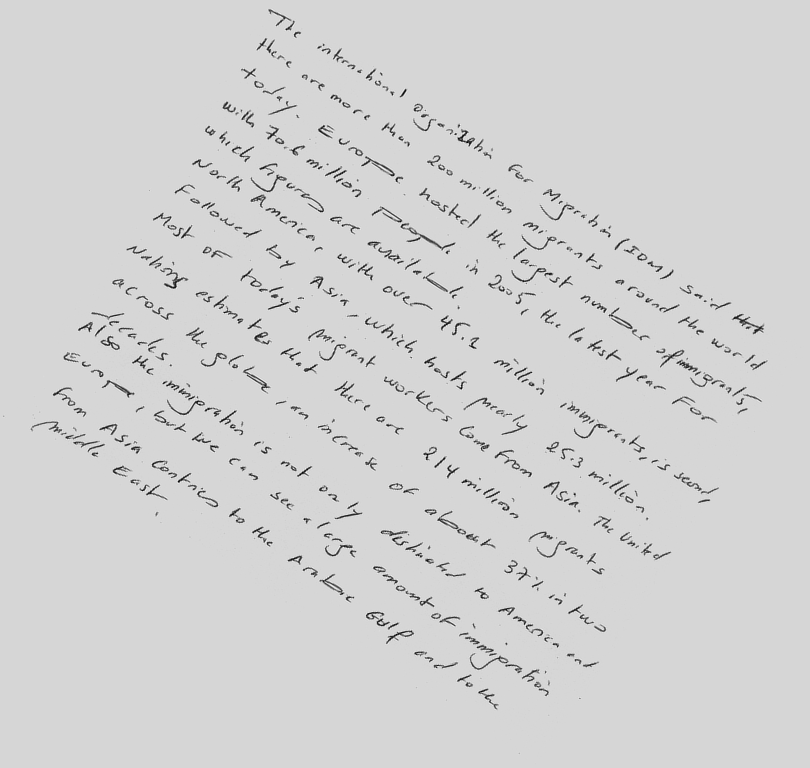 The international organization for Migration (IOM) said that
there are more than 200 million migrants around the world
today. Europe hosted the largest number of immigrants,
with 70.6 million people in 2005, the latest year for
which figures are available.
North America, with over 45.1 million immigrants, is second,
Followed by Asia, which hosts nearly 25.3 million.
Most of today's migrant workers come from Asia. The United
Nations estimates that there are 214 million migrants
across the globe, an increase of about 37% in two
decades.
Also the immigration is not only distinated to America and
Europe, but we can see a large amount of immigration
from Asia contries to the Arabic Gulf and to the
middle East.